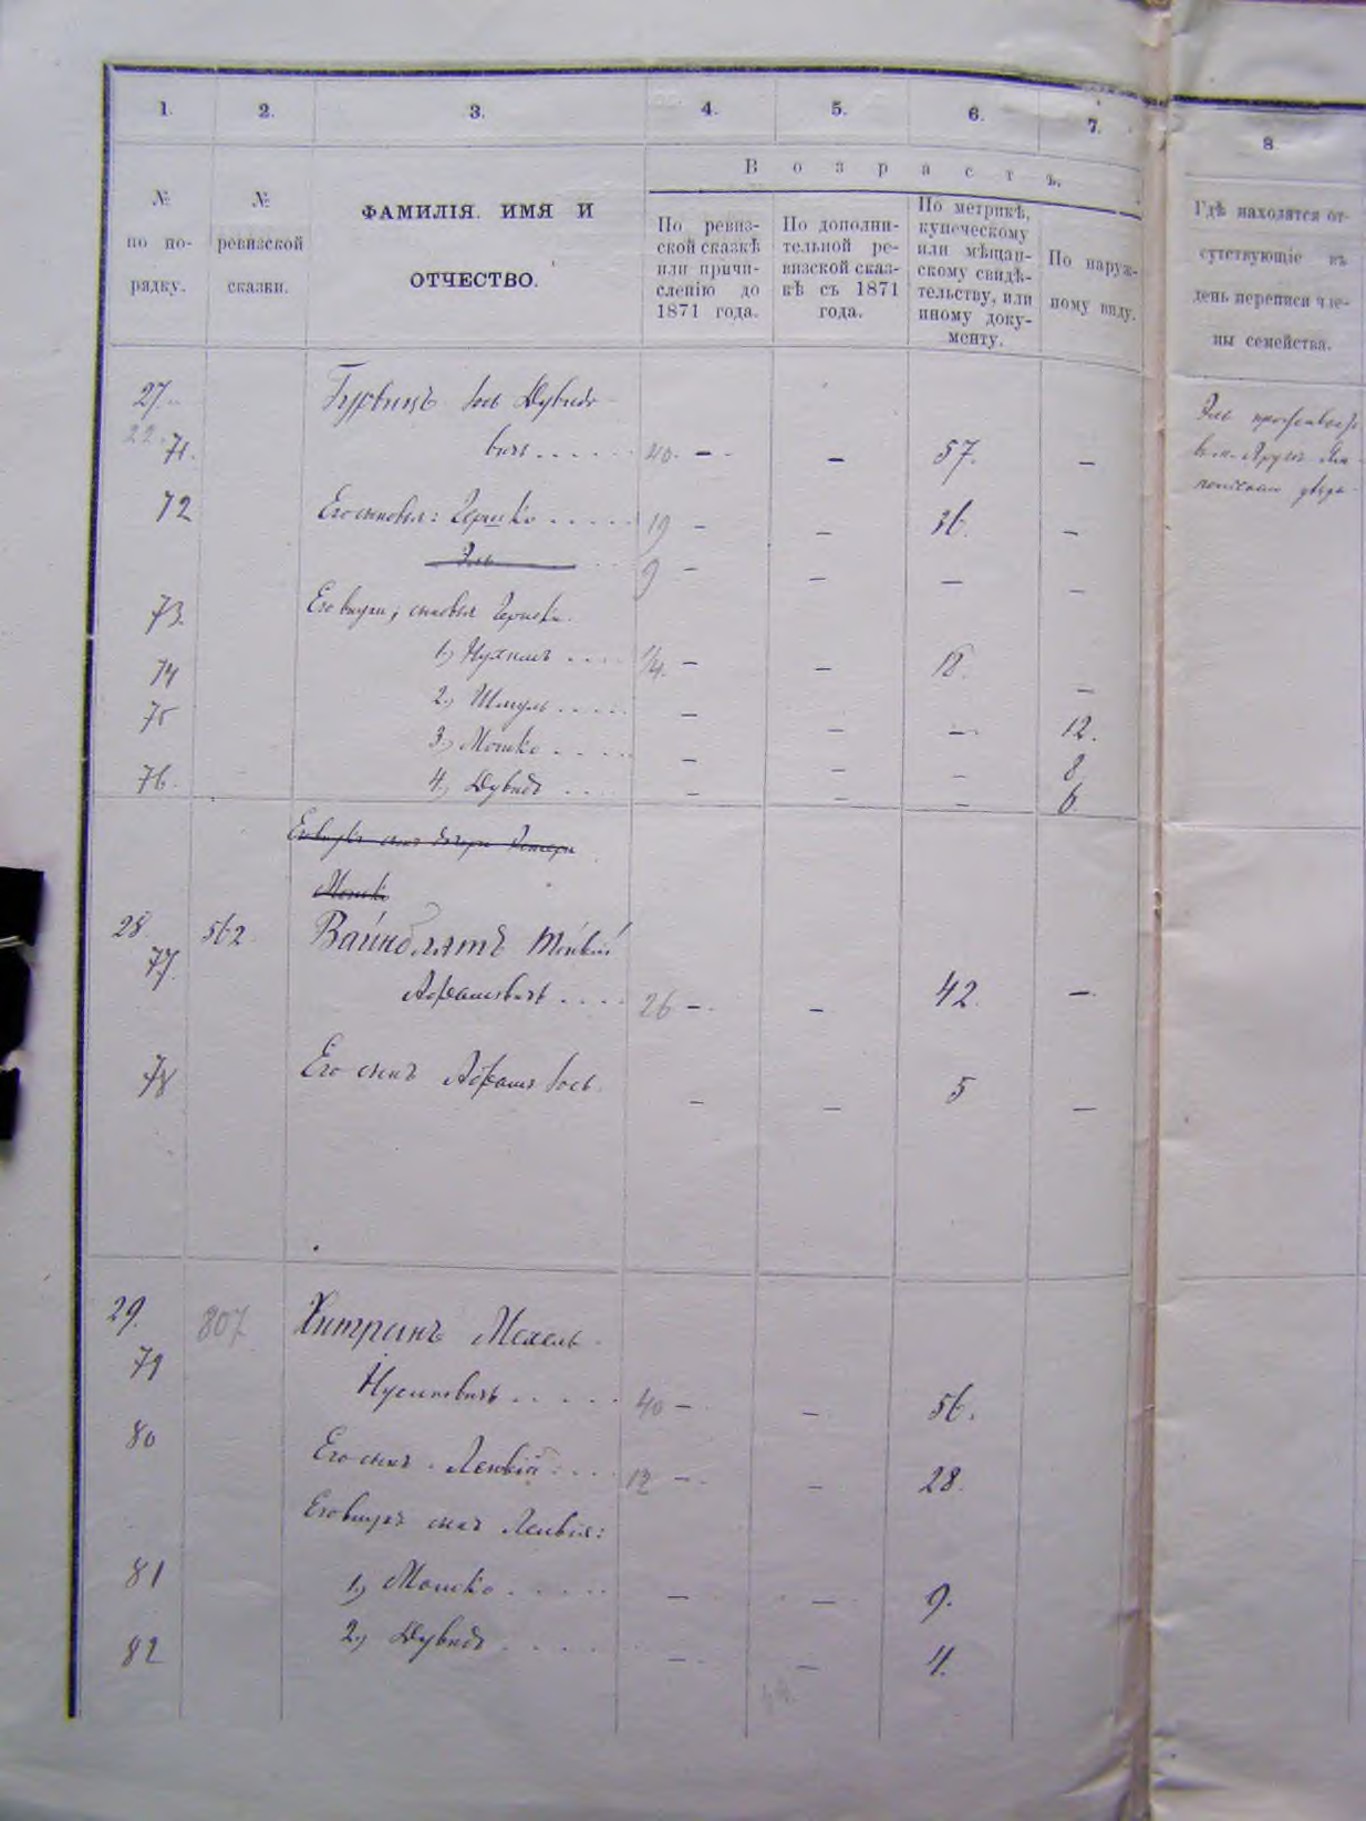 1. 2. 3. 4. 5. 6. 7. 8
Возрастъ.
№ по по- рядку.
№ ревизской сказки.
ФАМИЛІЯ. ИМЯ И
ОТЧЕСТВО.
По ревиз-
ской сказкѣ
или причи-
сленію до
1871 года.
По дополни-
тельной ре-
визской сказ-
кѣ съ 1871
года.
По метрикѣ,
купеческому
или мѣщан-
скому свидѣ-
тельству, или
иному доку-
менту.
По наруж-
ному виду.
Гдѣ находятся от-
сутствующіе въ
день переписи чле-
ны семейства.
27. Гурвичъ Іось Дувидо-
22. 71. вичъ 40. — — 57. —
72 Его сыновья: Гершко 19 — — 36. —
Эль 9 — — — —
73. Его внуки, сыновья Гершки
1.) Нухимъ 1/4. — — 18.
74 2.) Шмуль — — — 12.
75 3.) Мошко — — — 8
76. 4.) Дувидъ — — — 6.
Мошко
28. 562 Вайнблатъ
77. Абрамовичъ 26 — — 42. —
78 Его сынъ Абрамъ Іось — — 5 —
29. 807 Хитринъ Мехель
79 Нусимовичъ 40 — — 56.
80 Его сынъ Лейвій 12 — — 28.
Его внукъ сынъ Лейвія:
81 1.) Мошко — — 9.
82 2.) Дувидъ — — 4.
Эль проживаетъ